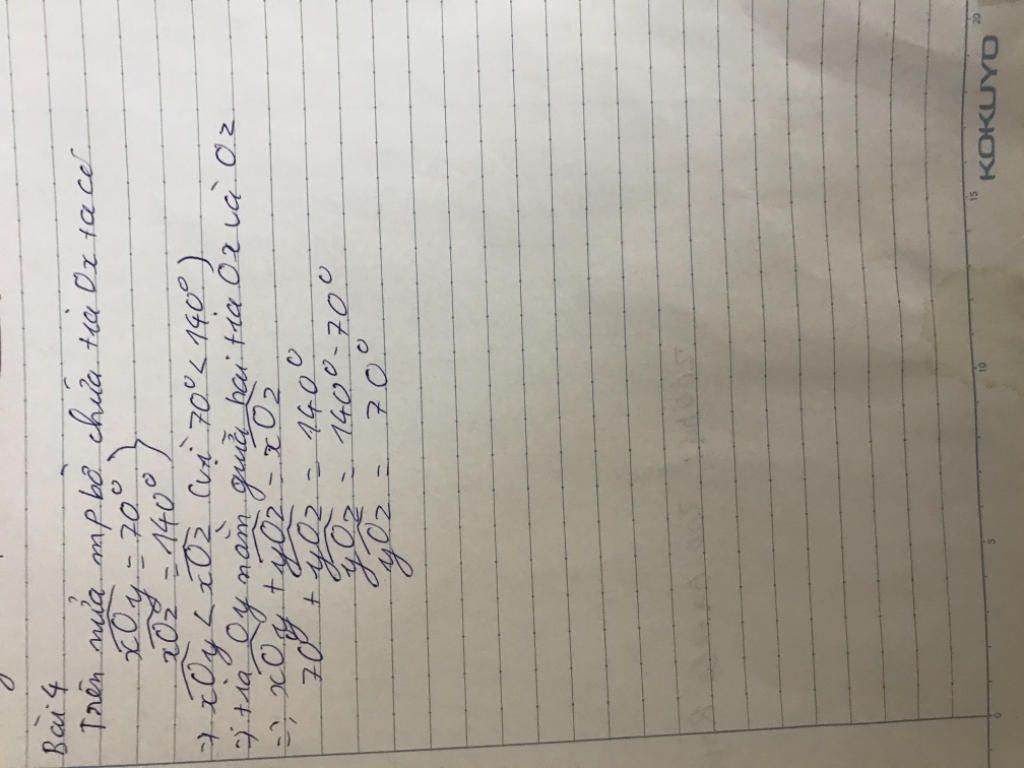 Bài 4
Trên nửa mp bờ chứa tia Ox ta có
xOy = 70°
xOz = 140° }
=> xOy < xOz (vì 70° < 140°)
=> tia Oy nằm giữa hai tia Ox và Oz
=> xOy + yOz = xOz
70° + yOz = 140°
yOz = 140° - 70°
yOz = 70°
0 5 10 15 20
KOKUYO